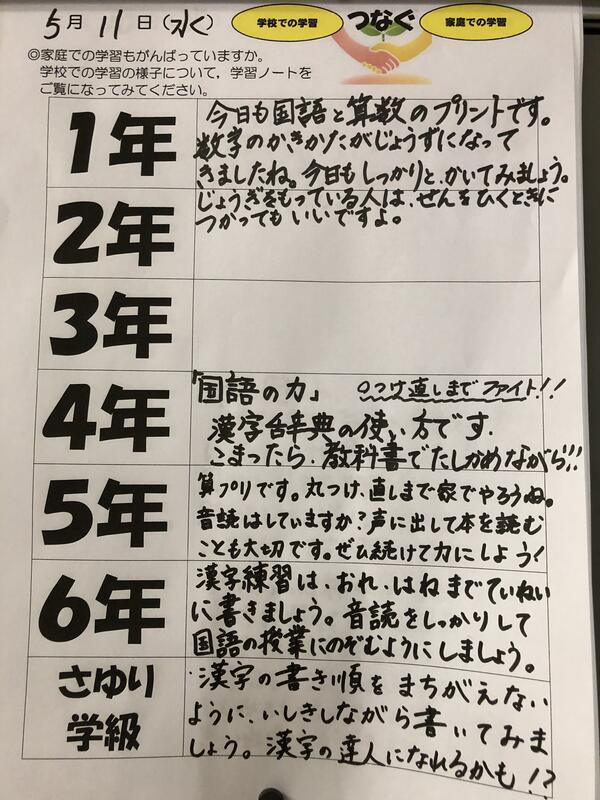 5月11日(水)
学校での学習 つなぐ 家庭での学習
◎家庭での学習もがんばっていますか。
学校での学習の様子について，学習ノートを
ご覧になってみてください。
1年
今日も国語と算数のプリントです。
数字のかきかたがじょうずになって
きましたね。今日もしっかりと、かいてみましょう。
じょうぎをもっている人は、せんをひくときに
つかってもいいですよ。
2年
3年
4年
「国語の力」 〇つけ直しまでファイト!!
漢字辞典の使い方です.
こまったら、教科書でたしかめながら!!
5年
算プリです。丸つけ、直しまで家でやろうね。
音読はしていますか?声に出して本を読む
ことも大切です。ぜひ続けて力にしよう!
6年
漢字練習は、おれ、はねまでていねい
に書きましょう。音読をしっかりして
国語の授業にのぞむようにしましょう。
さゆり
学級
漢字の書き順をまちがえない
ように、いしきしながら書いてみま
しょう。漢字の達人になれるかも!?